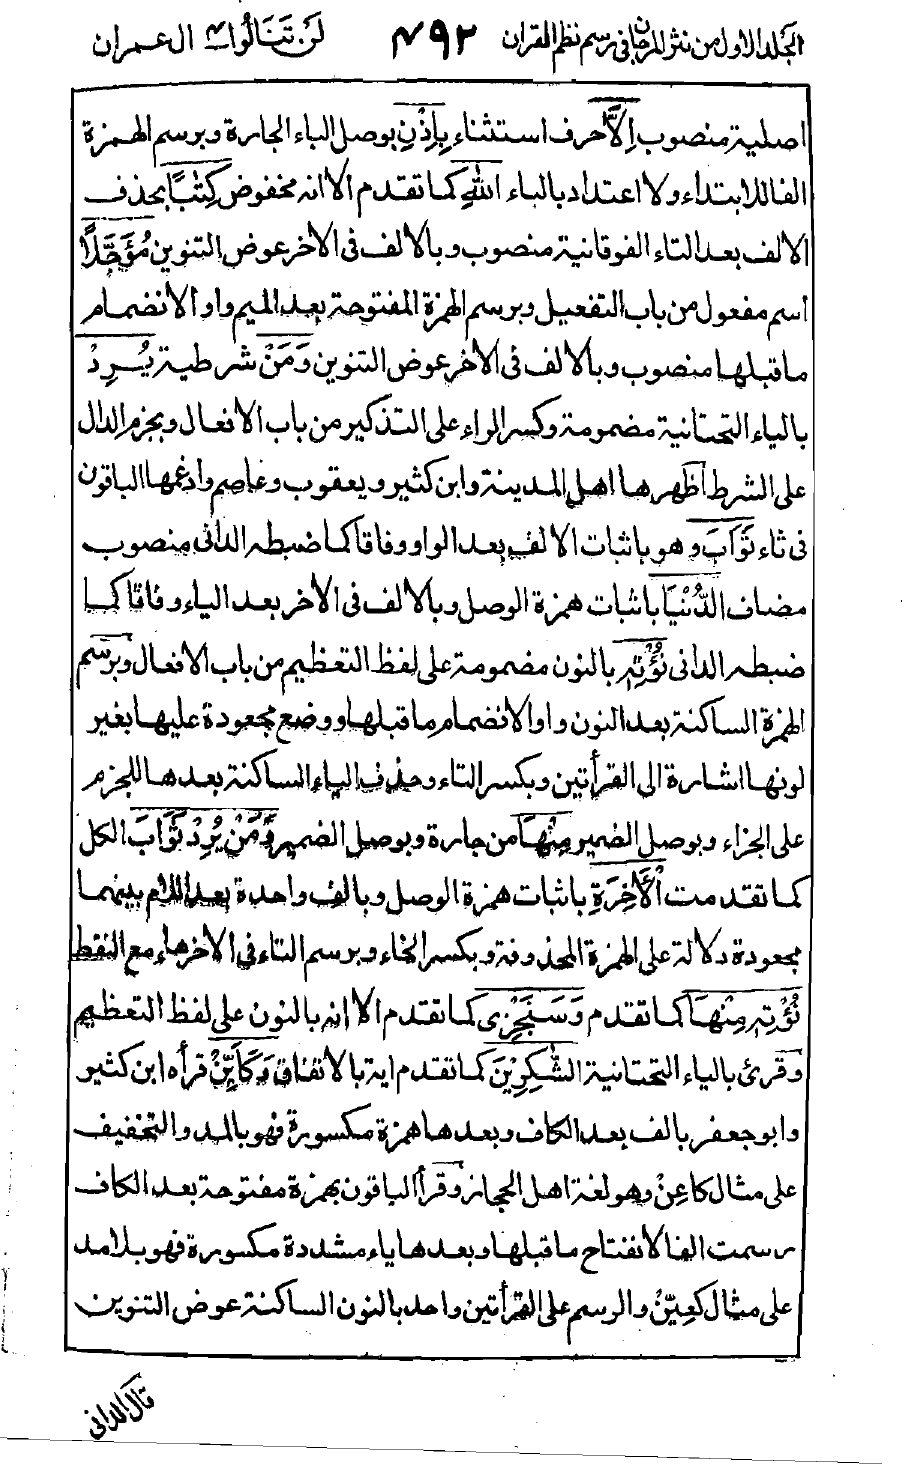 الجلد الاول من نثر المرجان في رسم نظم القران ٤٩٢ لن تنالوا ٤ ال عمران
اصلية منصوب اِلَّا حرف استثناء بِاِذْنِ بوصل الباء الجارة وبرسم الهمزة
الفا للابتداء ولا اعتداد بالباء اللّٰهِ كما تقدم الا انه مخفوض كِتٰبًا بحذف
الالف بعد التاء الفوقانية منصوب وبالالف فى الاخر عوض التنوين مُؤَجَّلًا
اسم مفعول من باب التفعيل وبرسم الهمزة المفتوحة بعد الميم واو الانضمام
ما قبلها منصوب وبالالف فى الاخر عوض التنوين وَمَنْ شرطية يُرِدْ
بالياء التحتانية مضمومة وكسر الراء على التذكير من باب الافعال وبجزم الدال
على الشرط اظهرها اهل المدينة وابن كثير ويعقوب وعاصم وادغمها الباقون
فى ثاء ثَوَابَ وهو باثبات الالف بعد الواو وفاقا كما ضبطه الدانى منصوب
مضاف الدُّنْيَا باثبات همزة الوصل وبالالف فى الاخر بعد الياء وفاقا كما
ضبطه الدانى نُؤْتِهٖ بالنون مضمومة على لفظ التعظيم من باب الافعال وبرسم
الهمزة الساكنة بعد النون واو الانضمام ما قبلها ووضع مجعودة عليها بغير
لونها اشارة الى القرأتين وبكسر التاء وحذف الياء الساكنة بعدها للجزم
على الجزاء وبوصل الضمير مِنْهَا من جارة وبوصل الضمير وَمَنْ يُرِدْ ثَوَابَ الكل
كما تقدمت الْاٰخِرَةِ باثبات همزة الوصل وبالف واحدة بعد اللام بينهما
مجعودة دلالة على الهمزة المحذوفة وبكسر الخاء وبرسم التاء فى الاخر هاء مع النقط
نُؤْتِهٖ مِنْهَا كما تقدم وَسَنَجْزِى كما تقدم الا انه بالنون على لفظ التعظيم
وقرئ بالياء التحتانية الشّٰكِرِيْنَ كما تقدم اية بالاتفاق وَكَاَيِّنْ قرأه ابن كثير
وابو جعفر بالف بعد الكاف وبعدها همزة مكسورة فهو بالمد والتخفيف
على مثال كاعِنْ وهو لغة اهل الحجاز وقرأ الباقون بهمزة مفتوحة بعد الكاف
رسمت الفا لانفتاح ما قبلها وبعدها ياء مشددة مكسورة فهو بلا مد
على مثال كَعَيِّنْ والرسم على القرأتين واحد بالنون الساكنة عوض التنوين
قال الدانى